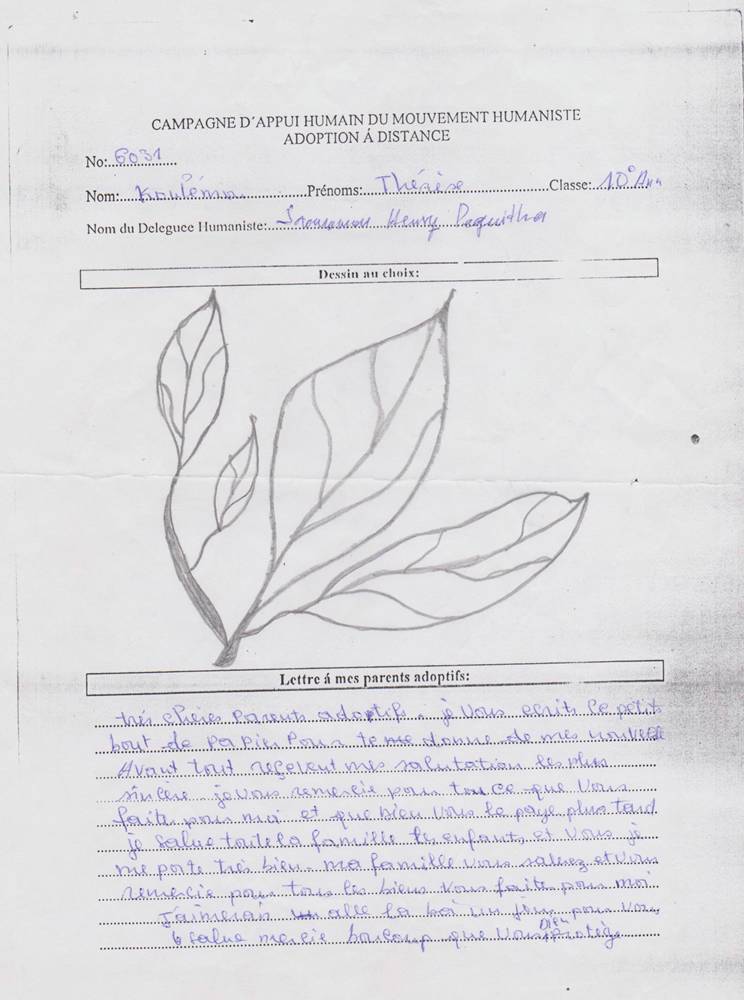 CAMPAGNE D'APPUI HUMAIN DU MOUVEMENT HUMANISTE
ADOPTION Á DISTANCE
No: 6031
Nom: Koulémou Prénoms: Thérèse Classe: 10° Ann
Nom du Deleguee Humaniste: Henry
Dessin au choix:
Lettre á mes parents adoptifs:
très chères Parents adoptifs je vous ecrits le petit
bout de Papier Pour te me donne de mes nouvelle
Avant tout reçevent mes salutation les plus
sincère je vous remercie pour tou ce que vous
faite pour moi et que bieu vous le paye plus tard
je salue toute la famille les enfants, et vous je
me porte très bien ma famille vous saluez et vous
remercie pour tous les biens vous faite pour moi
J'aimerais alle la ba un jour pour vou
salue mercie boucoup que vous Dieu protég.